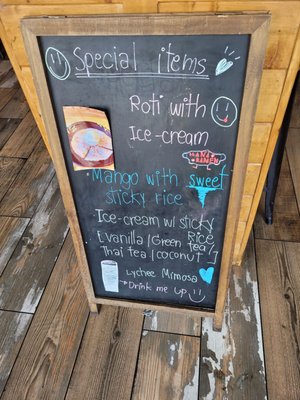 Special items
Roti with
Ice-cream
Mango with sweet
sticky rice
Ice-cream w/ sticky
Rice
vanilla / Green tea /
Thai tea / coconut
Lychee Mimosa
Drink me up